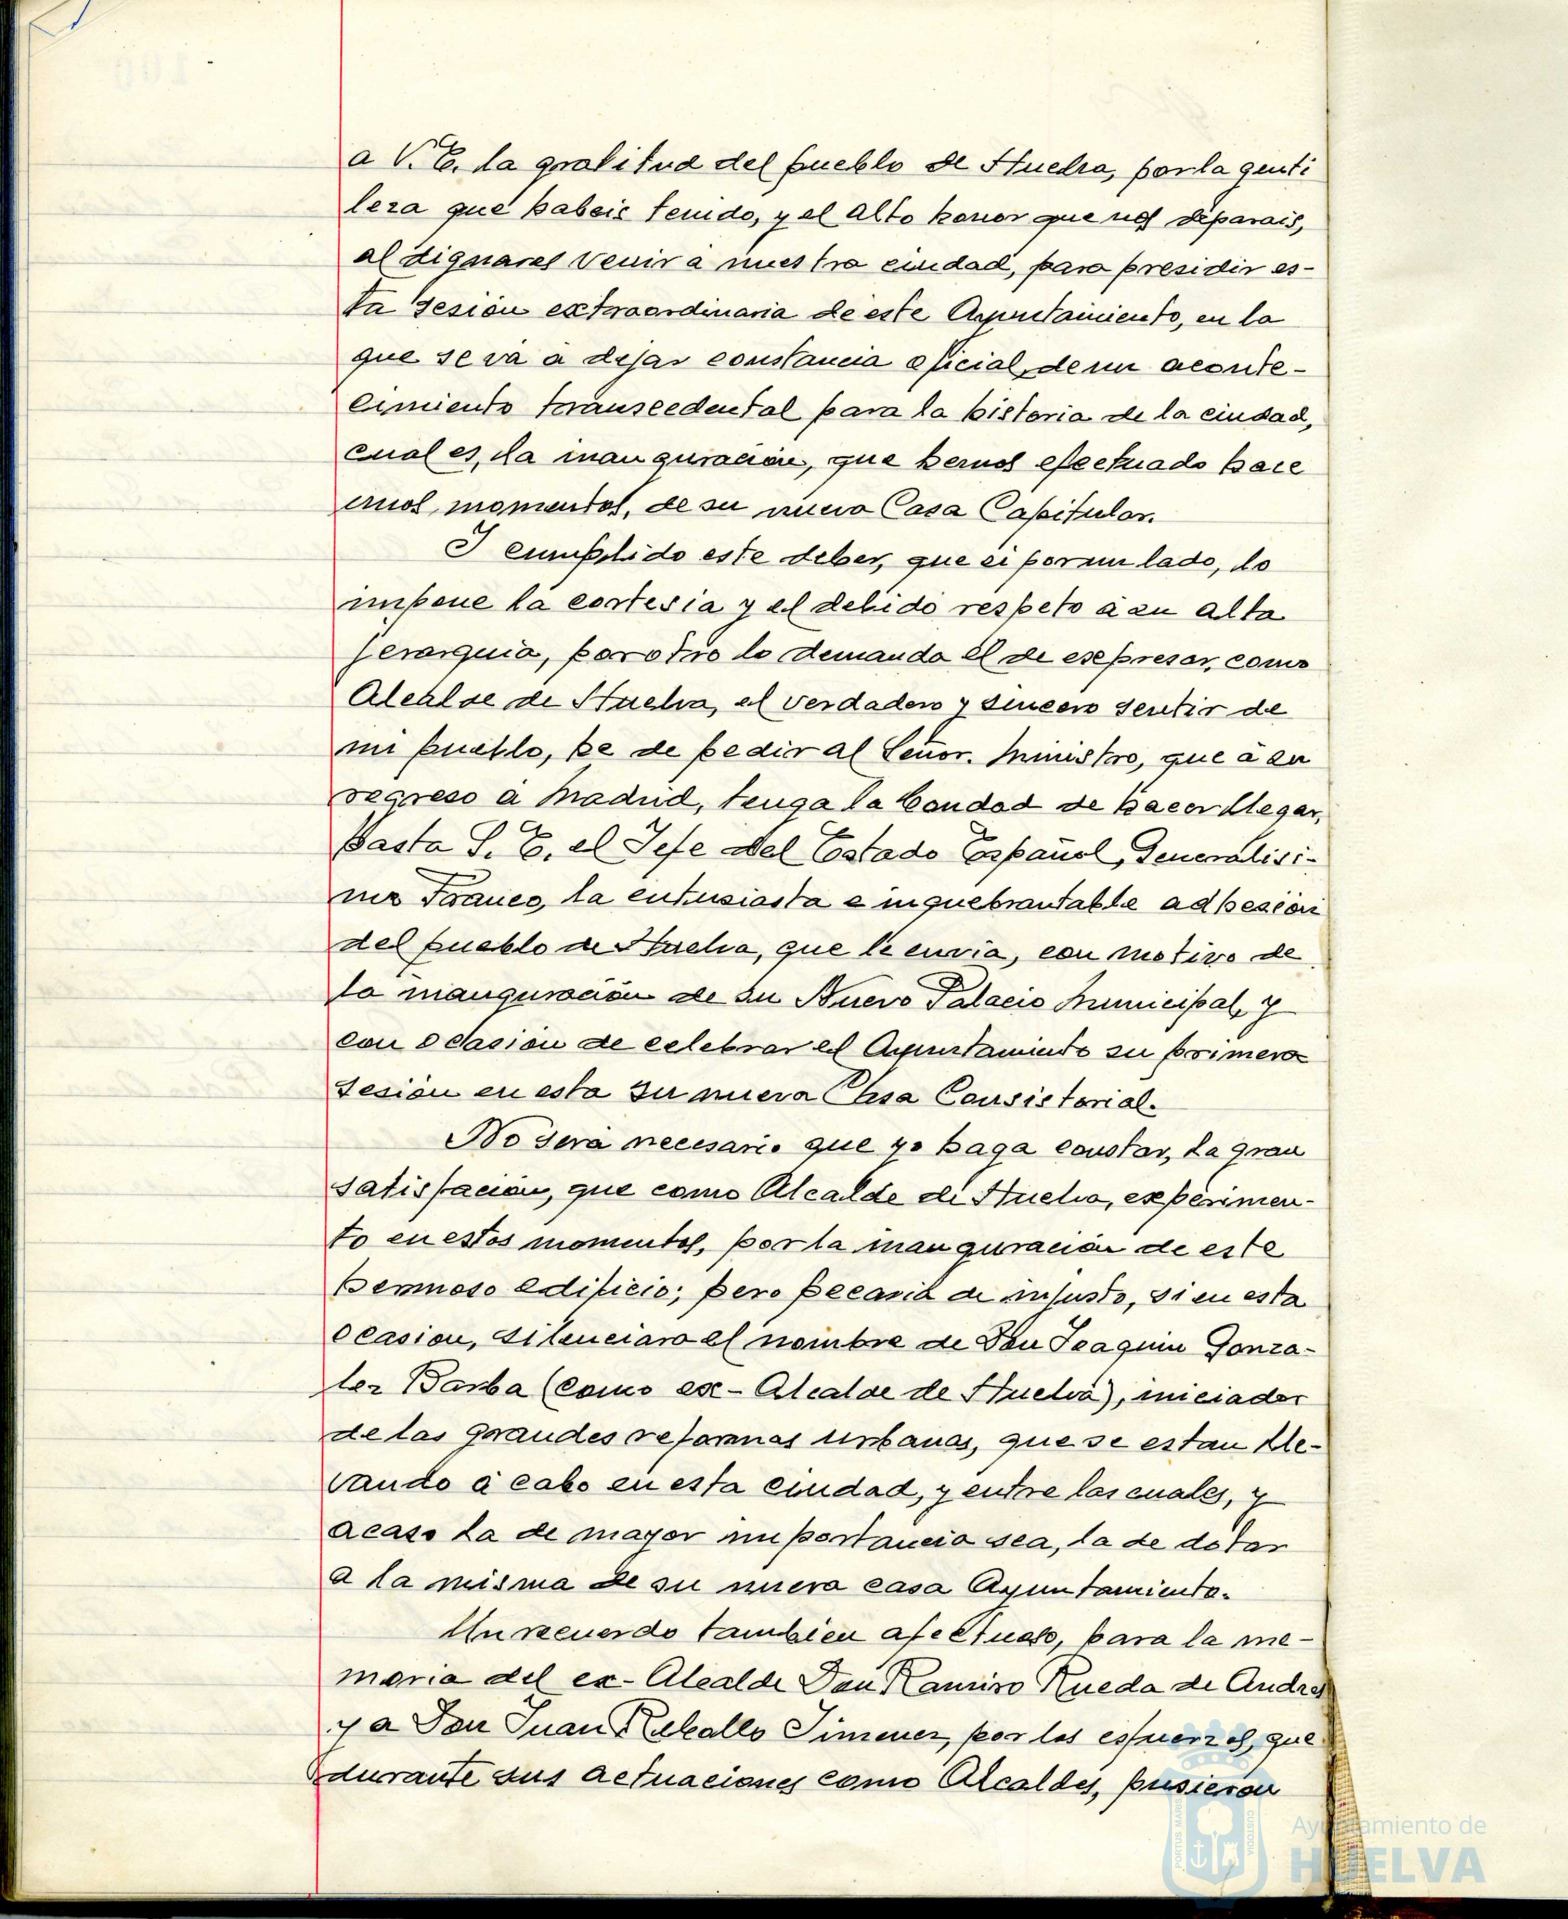 a V. E. la gratitud del pueblo de Huelva, por la genti
leza que habeis tenido, y el alto honor que nos deparais,
al dignaros venir a nuestra ciudad, para presidir es-
ta Sesión extraordinaria de este Ayuntamiento, en la
que se va a dejar constancia oficial, de un aconte-
cimiento transcedental para la historia de la ciudad,
cual es, la inauguración, que hemos efectuado hace
unos momentos, de su nueva Casa Capitular.
I cumplido este deber, que si por un lado, lo
impone la cortesia y el debido respeto a su alta
jerarquia, por otro lo demanda el de expresar, como
Alcalde de Huelva, el verdadero y sincero sentir de
mi pueblo, he de pedir al Señor. Ministro, que a su
regreso a Madrid, tenga la bondad de hacer llegar,
hasta S. E. el Jefe del Estado Español, Generalisi-
mo Franco, la entusiasta e inquebrantable adhesión
del pueblo de Huelva, que le envia, con motivo de
la inauguración de su Nuevo Palacio Municipal, y
con ocasión de celebrar el Ayuntamiento su primera
Sesión en esta su nueva Casa Consistorial.
No será necesario que yo haga constar, la gran
satisfación, que como Alcalde de Huelva, experimen-
to en estos momentos, por la inauguración de este
hermoso edificio; pero pecaria de injusto, si en esta
ocasion, silenciara el nombre de Don Joaquin Gonza-
lez Barba (como ex-Alcalde de Huelva), iniciador
de las grandes reformas urbanas, que se estan lle-
vando a cabo en esta ciudad, y entre las cuales, y
acaso la de mayor importancia sea, la de dotar
a la misma de su nueva casa Ayuntamiento.
Un recuerdo tambien afectuoso, para la me-
moria del ex-Alcalde Don Ramiro Rueda de Andres
y a Don Juan Rebollo Jimenez, por los esfuerzos, que
durante sus actuaciones como Alcaldes, pusieron
Ayuntamiento de
HUELVA
PORTUS MARIS
CUSTODIA